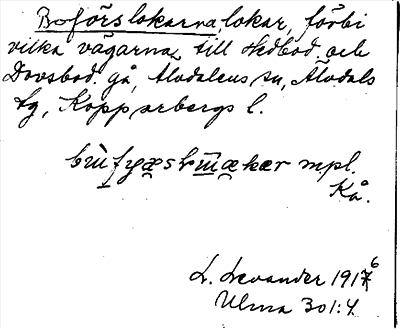 Boförslokarna, lokar, förbi
vilka vägarna till Hedbod och
Dovsbod gå, Älvdalens sn, Älvdals
tg, Kopparbergs l.
mpl.
Kå.
L. Levander 1916
Ulma 301:4.